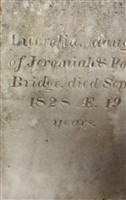 Lucretia, daug
of Jeremiah & Po
Bridge, died Sep
1828 Æ. 19
years.